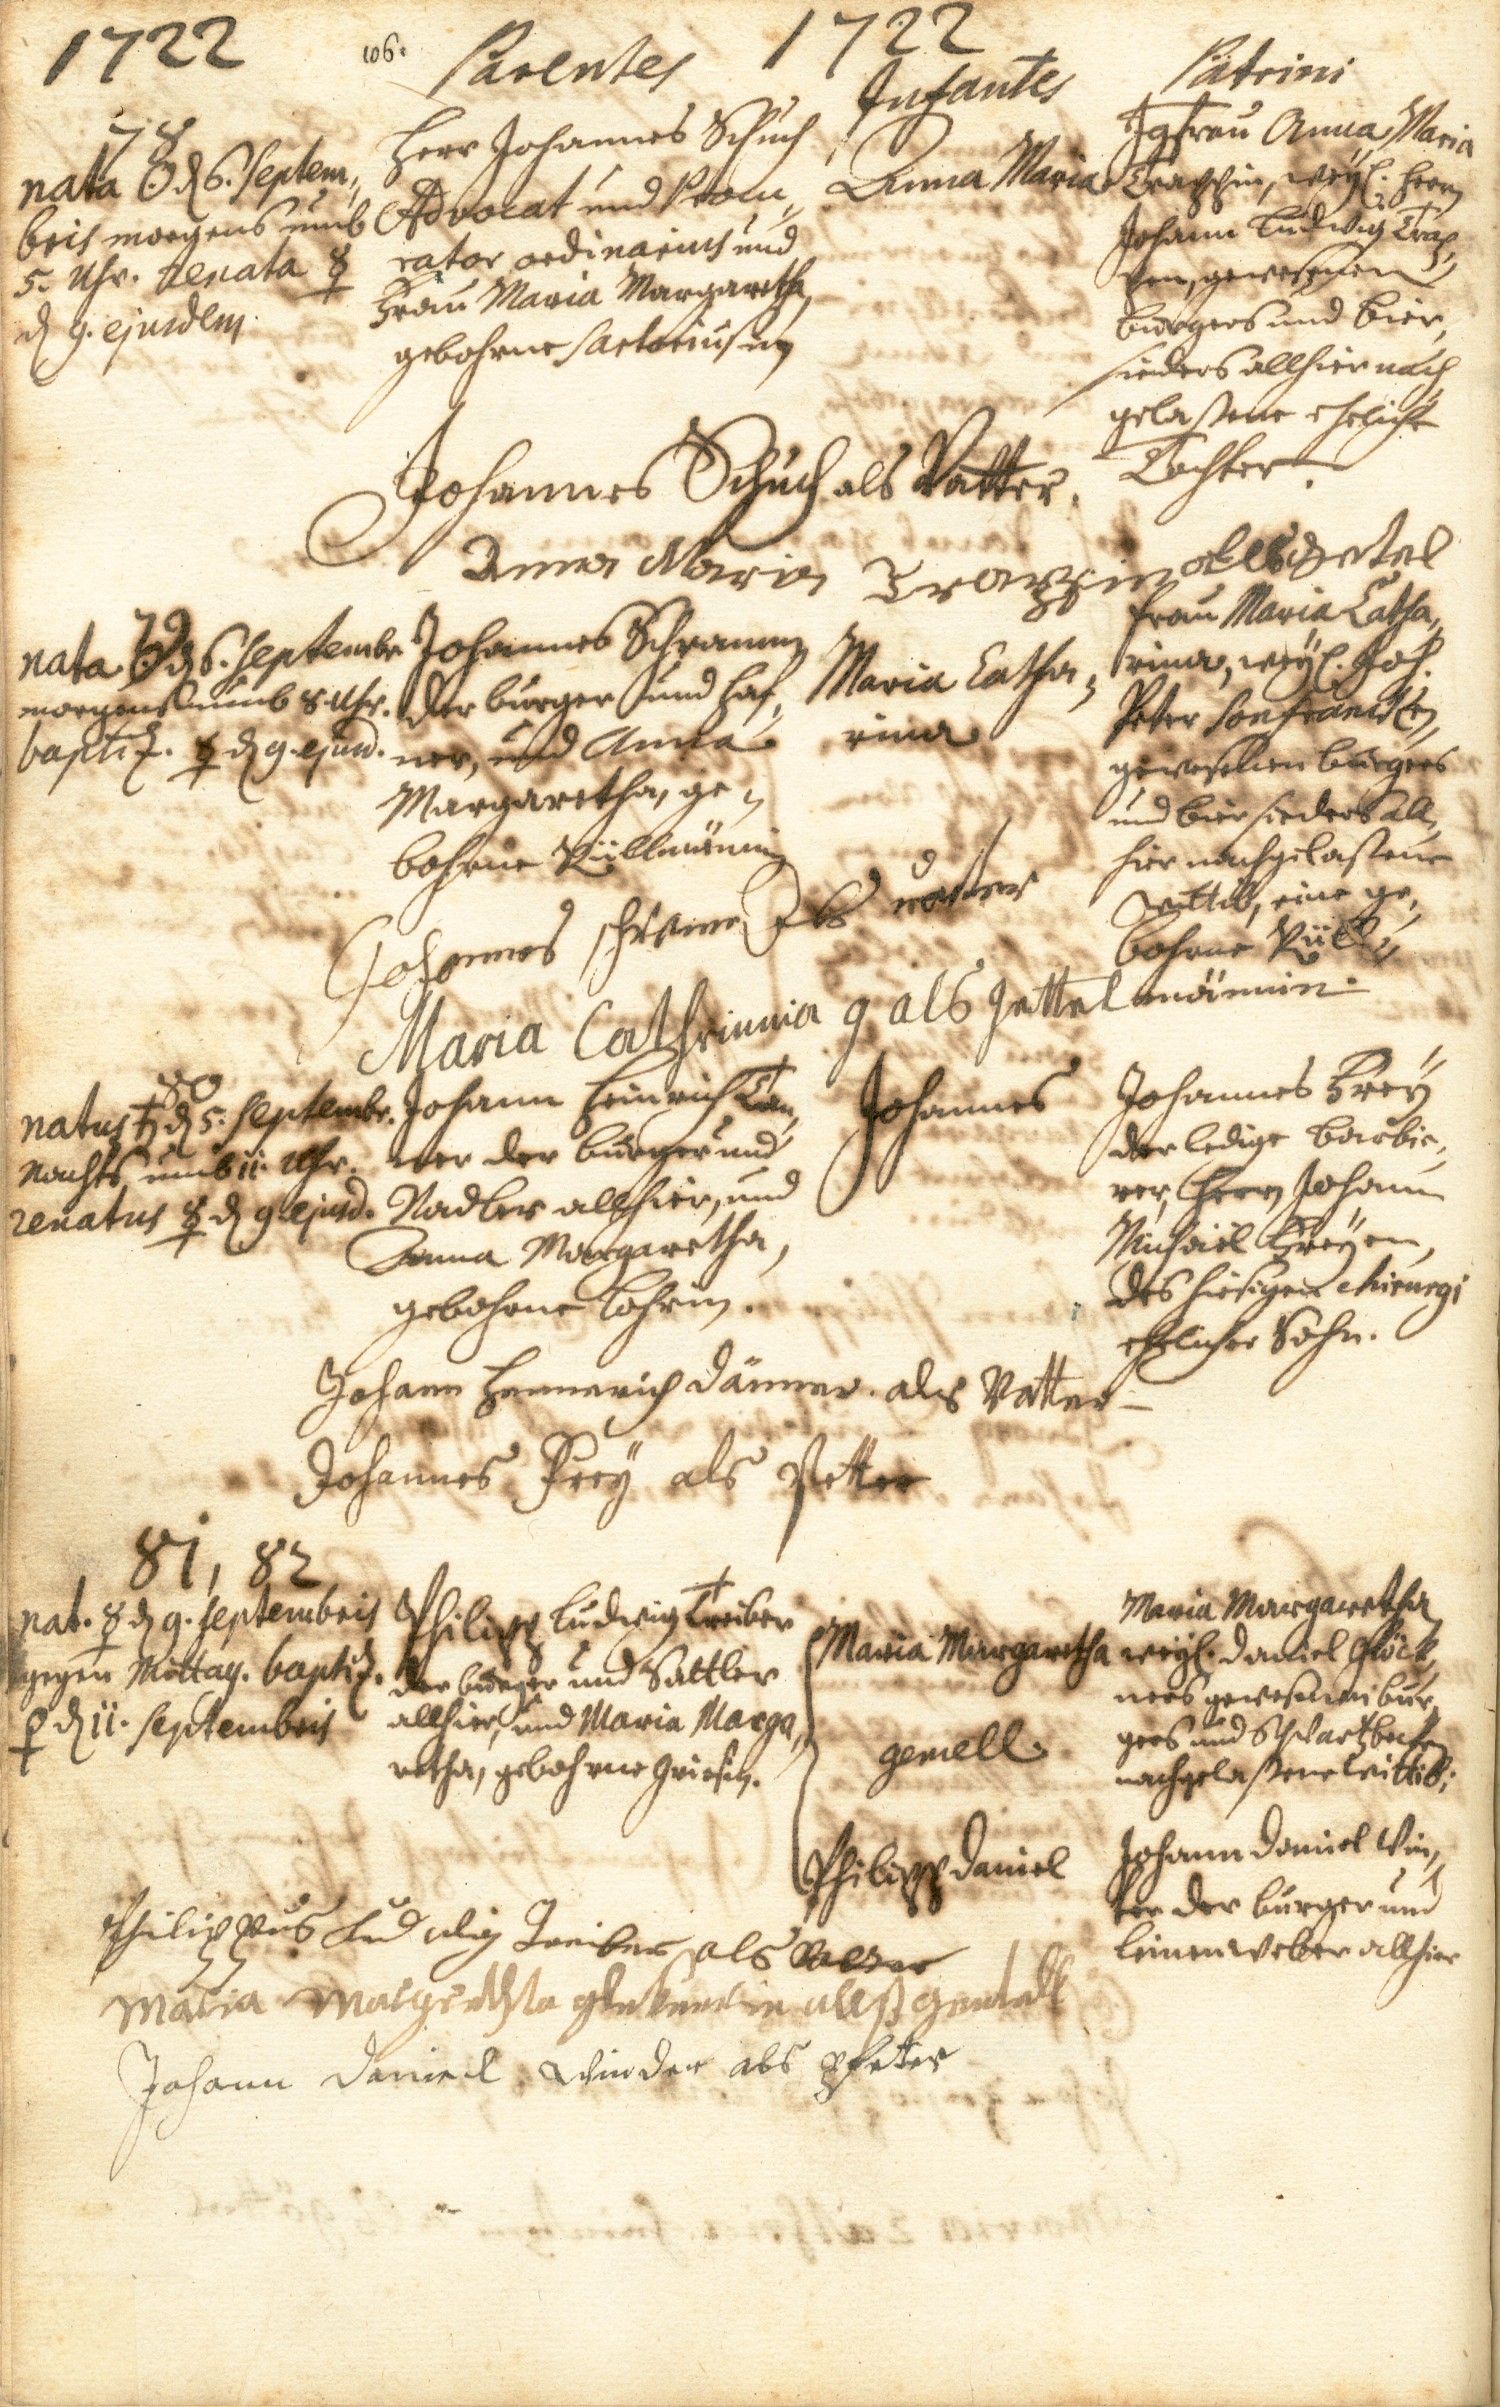 1722
106.
1722
Parentes
Infantes
Patrini
78
nata ☉ d. 6. Septem„
bris morgens umb
5. Uhr. renata ☿
d. 9. ejusdem.
Herr Johannes Schuch
Advocat und Procu„
rator ordinarius und
Frau Maria Margaretha,
gebohrne Sartoriusin
Anna Maria
Jgfrau Anna Maria
weyl. Herrn
Johann Ludwig
gewesenen
burgers und bier„
sieders allhier nach„
gelaßene eheliche
Tochter.
Johannes Schuch als Vatter.
Anna Maria
79
nata ☉ d. 6. Septembr.
morgens umb 8 Uhr.
baptiz. ☿ d. 9. ejusd.
Johannes Schramm
der burger und haf„
ner, und Anna
Margaretha, ge„
bohrne
Maria Catha„
rina
Frau Maria Catha„
rina, weyl. Joh.
Peter
gewesenen burgers
und biersieders all„
hier nachgelaßene
Wittib, eine ge„
bohrne
Johannes schram als vatter
Maria Cathrinnia als
80
natus ♄ d. 5. Septembr.
Nachts umb 11. Uhr.
renatus ☿ d. 9. ejusd.
Johann Heinrich Tän„
ner der burger und
Nadler allhier, und
Anna Margaretha,
gebohrne
Johannes
Johannes Frey
der ledige barbie„
rer, Herrn Johann
Michael Freyen,
des hiesigen chirurgi
ehelicher Sohn.
Johann Hennerich Dänner als Vatter
Johannes Frey als Petter
81, 82
nat. ☿ d. 9. Septembris
gegen Mittag. baptiz.
♀ d. 11. Septembris
Philipp Ludwig Treiber
der burger und Sattler
allhier, und Maria Marga„
retha, gebohrne
Maria Margaretha
gemell.
Philipp Daniel
Maria Margaretha
weyl. Daniel Glöck„
ners gewesenen bur„
gers und Schwartzbecken
nachgelaßene Wittib;
Johann Daniel Win„
ter der burger und
leinenweber allhier
Philippus Ludwig Treiber als Vatter
Maria Margretha
Johann Daniel Winder als